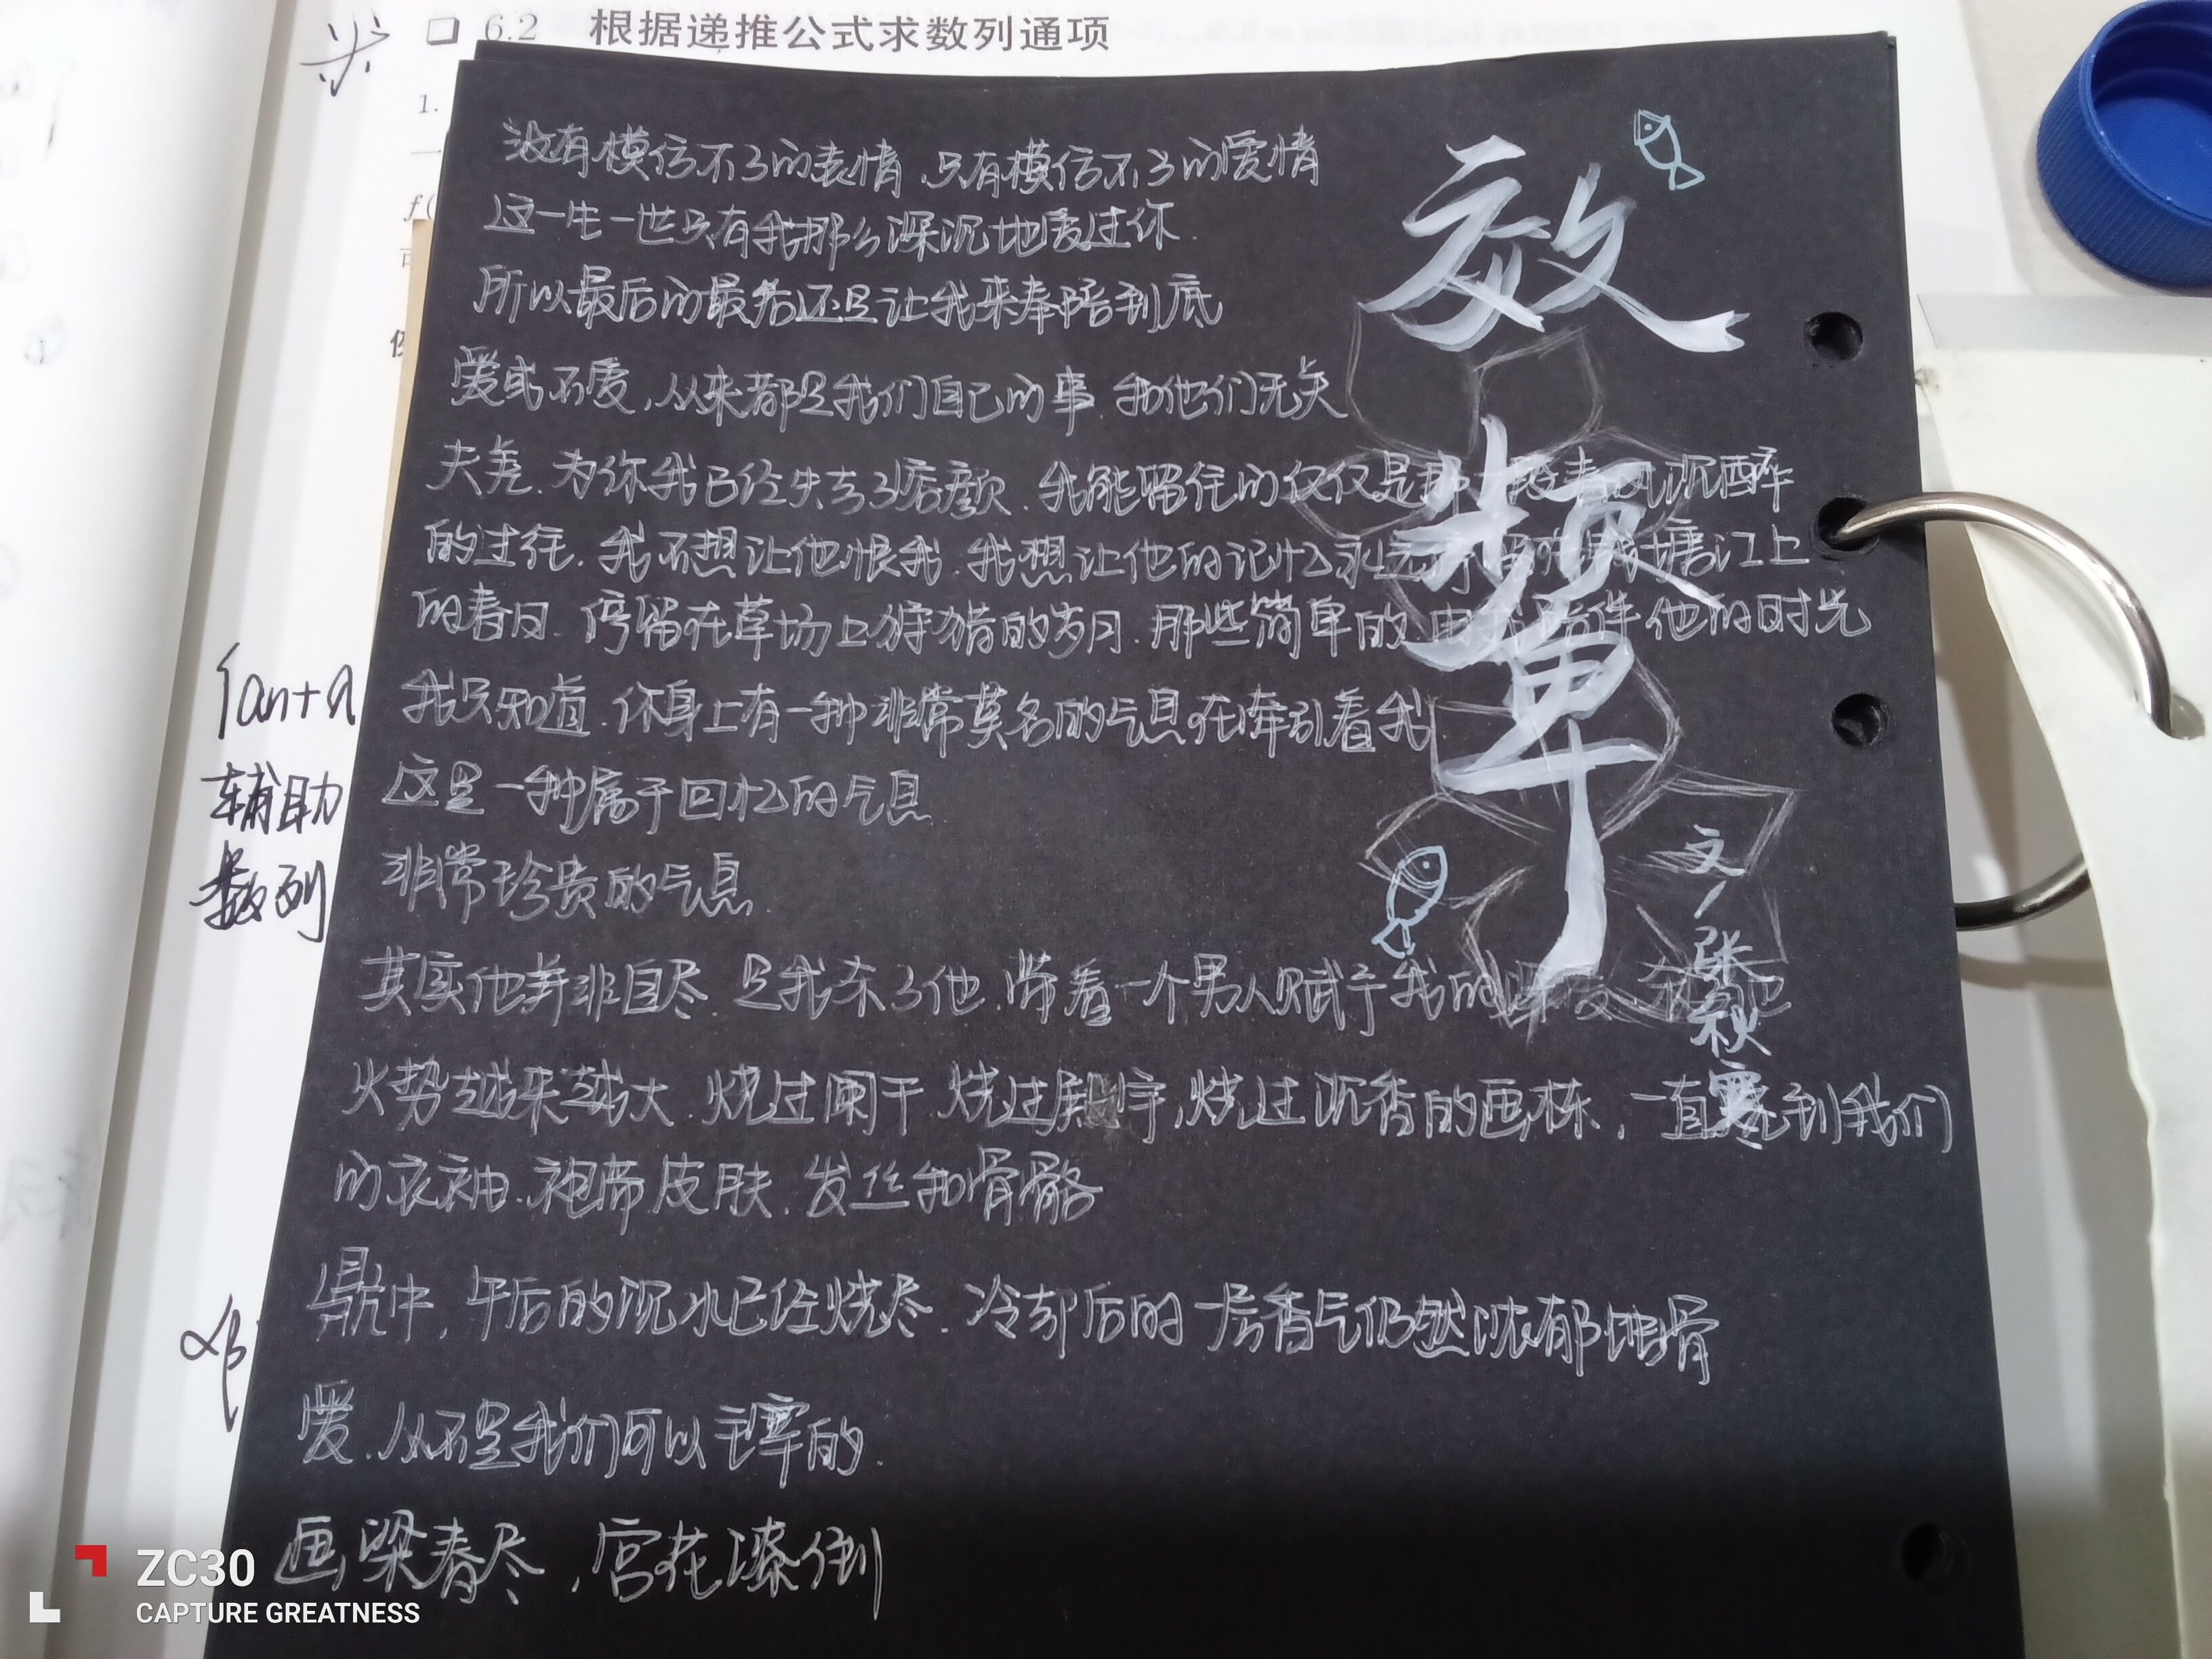 6.2 根据递推公式求数列通项
1.
f(
效颦
文/张秋寒
没有模仿不了的表情,只有模仿不了的爱情
这一生一世只有我那么深沉地爱过你.
所以最后的最后还是让我来奉陪到底
爱或不爱,从来都是我们自己的事.和他们无关
夫差.为你我已经失去了痞颜.我能留住的仅仅是那一段春风沉醉
的过往.我不想让他恨我.我想让他的记忆永远停留在钱塘江上
的春日.停留在草场上狩猎的岁月.那些简单的由我陪伴他的时光
我只知道.你身上有一种非常莫名的气息在牵引着我
这是一种属于回忆的气息
非常珍贵的气息
其实他并非自尽.是我杀了他.带着一个男人赋予我的 杀了他
火势越来越大.烧过阑干.烧过殿宇,烧过沉香的画栋,一直烧到我们
的衣袖.袍带.皮肤.发丝和骨骼
中,午后的沉水已经烧尽.冷却后的一房香气仍然沈郁 骨
爱.从不是我们可以主宰的.
画梁春尽,宫花凑倒
{an+λ
辅助
数列
αβ
ZC30
CAPTURE GREATNESS